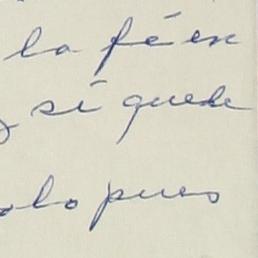 la fé en
sí quede
olo pues